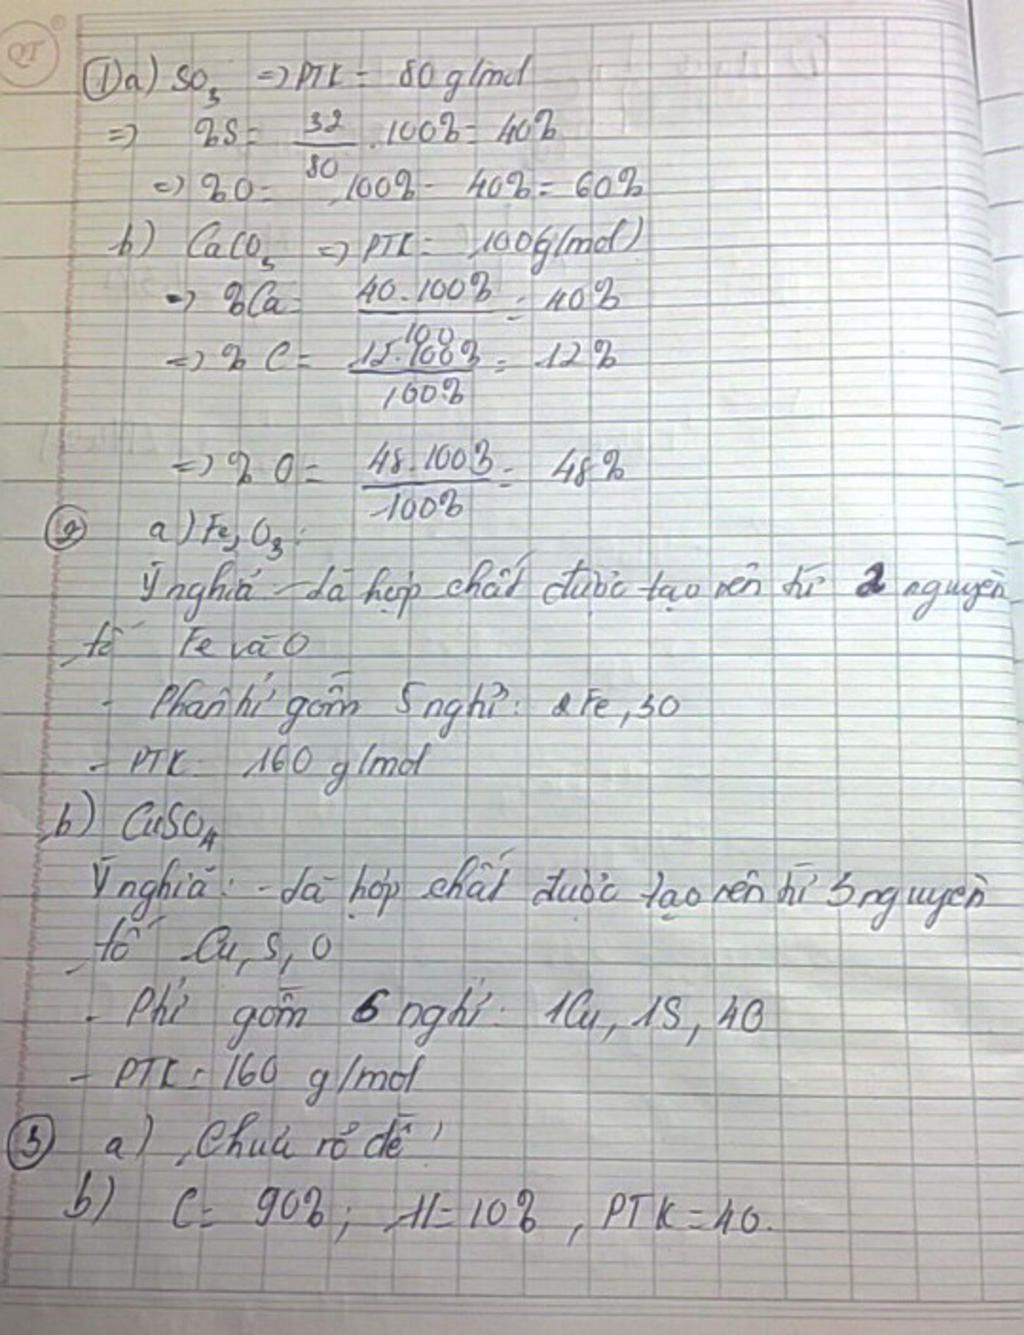 QT
① a) SO₃ => PTK = 80 g/mol
=> %S = 32/80 . 100% = 40%
=> %O = 100% - 40% = 60%
b) CaCO₃ => PTK = 100 g/mol)
=> %Ca = 40.100%/100 = 40%
=> % C = 12.100%/100% = 12%
=> % O = 48.100%/100% = 48%
② a) Fe₂O₃:
Ý nghĩa - Là hợp chất được tạo nên từ 2 nguyên
tố Fe và O
- Phân tử gồm 5 ng tử: 2Fe, 3O
- PTK = 160 g/mol
b) CuSO₄
Ý nghĩa: - Là hợp chất được tạo nên từ 3 nguyên
tố Cu, S, O
- Ph tử gồm 6 ng tử: 1Cu, 1S, 4O
- PTK = 160 g/mol
③ a) Chưa rõ đề
b) C = 90%; H = 10%, PTK = 40.